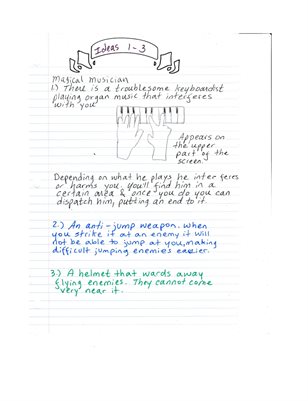 Ideas 1-3
Magical musician
1.) There is a troublesome keyboardist
playing organ music that interferes
with you
Appears on
the upper
part of the
screen.
Depending on what he plays he interferes
or harms you. You'll find him in a
certain area & once you do you can
dispatch him, putting an end to it.
2.) An anti-jump weapon. When
you strike it at an enemy it will
not be able to jump at you, making
difficult jumping enemies easier.
3.) A helmet that wards away
flying enemies. They cannot come
very near it.